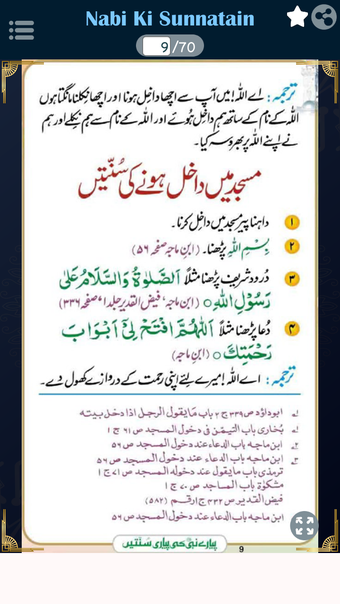 Nabi Ki Sunnatain
9/70
ترجمہ: اے اللہ! میں آپ سے اچھا داخل ہونا اور اچھا نکلنا مانگتا ہوں
اللہ کے نام کے ساتھ ہم داخل ہوئے اور اللہ کے نام سے ہم نکلے اور ہم
نے اپنے اللہ پر بھروسہ کیا۔
مسجد میں داخل ہونے کی سُنّتیں
۱ داہنا پیر مسجد میں داخل کرنا۔
۲ بِسْمِ اللّٰہِ پڑھنا۔ (ابن ماجہ صفحہ ۵۶)
۳ درود شریف پڑھنا مثلاً اَلصَّلٰوةُ وَالسَّلَامُ عَلٰی
رَسُوْلِ اللّٰهِ ○ (ابن ماجہ، فیض القدیر جلد۱، صفحہ ۳۳۶)
۴ دُعا پڑھنا مثلاً اَللّٰهُمَّ افْتَحْ لِیْٓ اَبْوَابَ
رَحْمَتِكَ ○ (ابن ماجہ)
ترجمہ: اے اللہ! میرے لئے اپنی رحمت کے دروازے کھول دے۔
ابوداؤد ص ۳۳۹ ج ۲ باب مایقول الرجل اذا دخل بیته
بخاری باب التیمن فی دخول المسجد ص ۶۱ ج ۱
ابن ماجه باب الدعاء عند دخول المسجد ص ۵۶
ابن ماجه باب الدعاء عند دخول المسجد ص ۵۶
ترمذی باب مایقول عند دخوله المسجد ص ۷۱ ج ۱
مشکوٰة باب المساجد ص ۷۰ ج ۱
فیض القدیر ص ۳۳۲ ج ۱ رقم (۵۸۲)
ابن ماجه باب الدعاء عند دخول المسجد ص ۵۶
پیارے نبی کی پیاری سُنّتیں
9